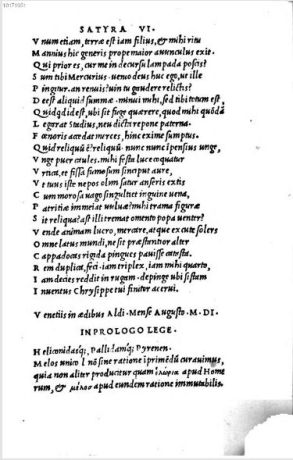 SATYRA VI.
V num etiam, terræ est iam filius, & mihi ritu
M annius hic generis prope maior auunculus exit.
Q ui prior es, cur me in decursu lampada poscis?
S um tibi Mercurius. uenio deus huc ego, ut ille
P ingitur. an renuis? uin tu gaudere relictis?
D eest aliquid summæ. minui mihi, sed tibi totum est,
Q uidquid id est, ubi sit fuge quærere, quod mihi quōdā
L egarat Stadius, neu dicta repone paterna.
F œnoris accedat merces, hinc exime sumptus.
Q uid reliquū ē? reliquū? nunc nunc īpensius unge,
V nge puer caules. mihi festa luce coquatur
V rtica, et fissa fumosum sinciput aure,
V t tuus iste nepos olim satur anseris extis
C um morosa uago singultiet inguine uena,
P atritiæ immeiat uuluæ? mihi trama figuræ
S it reliqua? ast illi tremat omento popa uenter?
V ende animam lucro, mercare, atque excute solers
O mne latus mundi, ne sit præstantior alter
C appadocas rigida pingues pauisse catasta.
R em duplica, feci. iam triplex, iam mihi quarto,
I am decies reddit in rugam. depinge ubi sistam
I nuentus Chrysippe tui finitor acerui.
V enetiis in ædibus Aldi. Mense Augusto. M. DI.
IN PROLOGO LEGE.
H eliconidasq;, Pallidamq; Pyrenen.
M elos unico l nō sine ratione īprimēdū curauimus,
quia non aliter producitur quam apud Home
rum, & μέλος apud eundem ratione immutabilis.